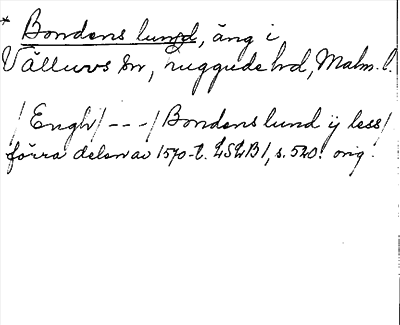 * Bondens lund, äng i
Välluvs sn, Luggude hd, Malm. l.
/Engh/ --- / Bondens lund ij less/
förra delen av 1570-t. LSLB 1, s. 520. orig.